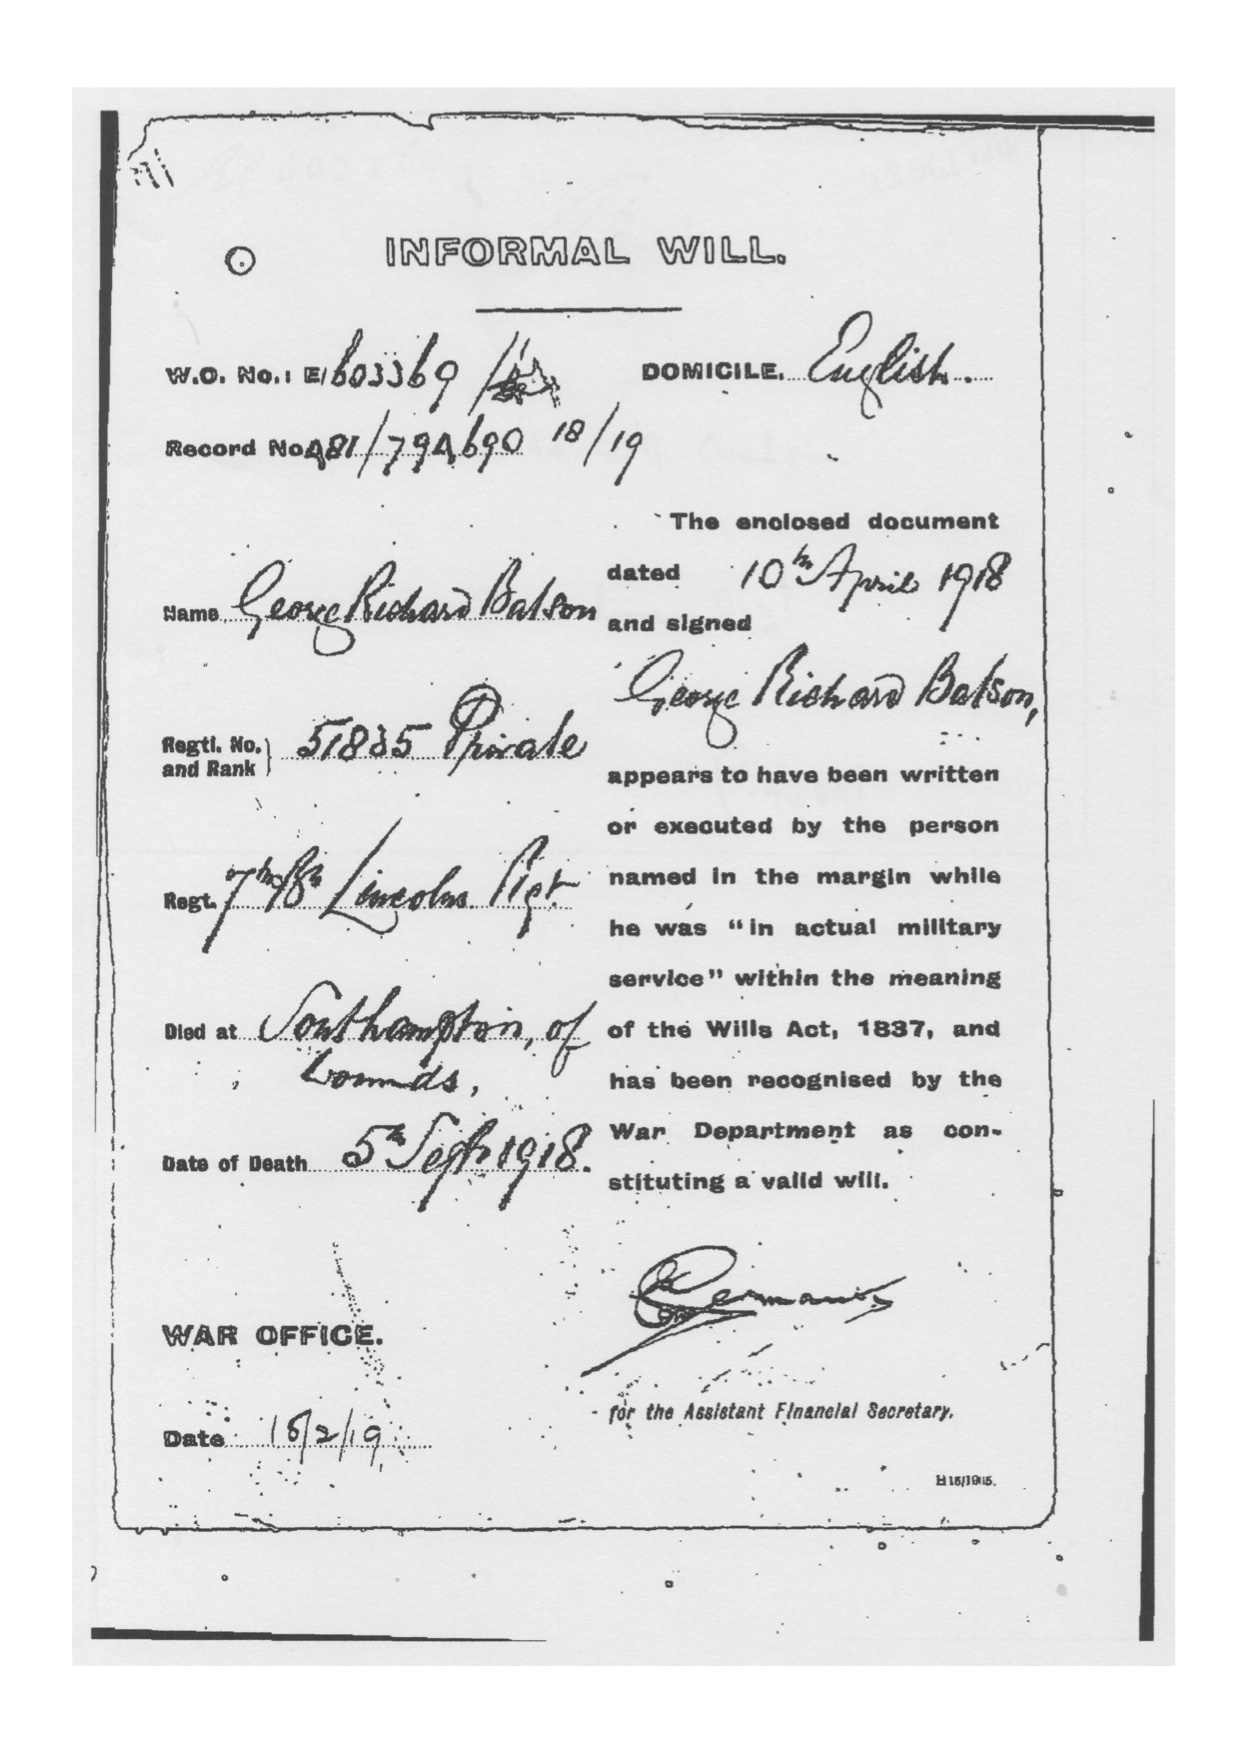 INFORMAL WILL.
W.O. No.: E/603369/
DOMICILE. English.
Record No. 481/794690 18/19
The enclosed document
dated 10th April 1918
Name George Richard Batson
and signed
George Richard Batson,
Regtl. No. and Rank } 51835 Private
appears to have been written
or executed by the person
named in the margin while
Regt. 7th/8th Lincolns. Rgt.
he was "in actual military
service" within the meaning
Died at Southampton, of
of the Wills Act, 1837, and
wounds,
has been recognised by the
War Department as con-
Date of Death 5th Sept 1918.
stituting a valid will.
WAR OFFICE.
for the Assistant Financial Secretary.
Date 15/2/19